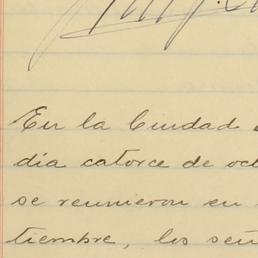 En la Ciudad
día catorce de oc
se reunieron en
tiembre, los señ